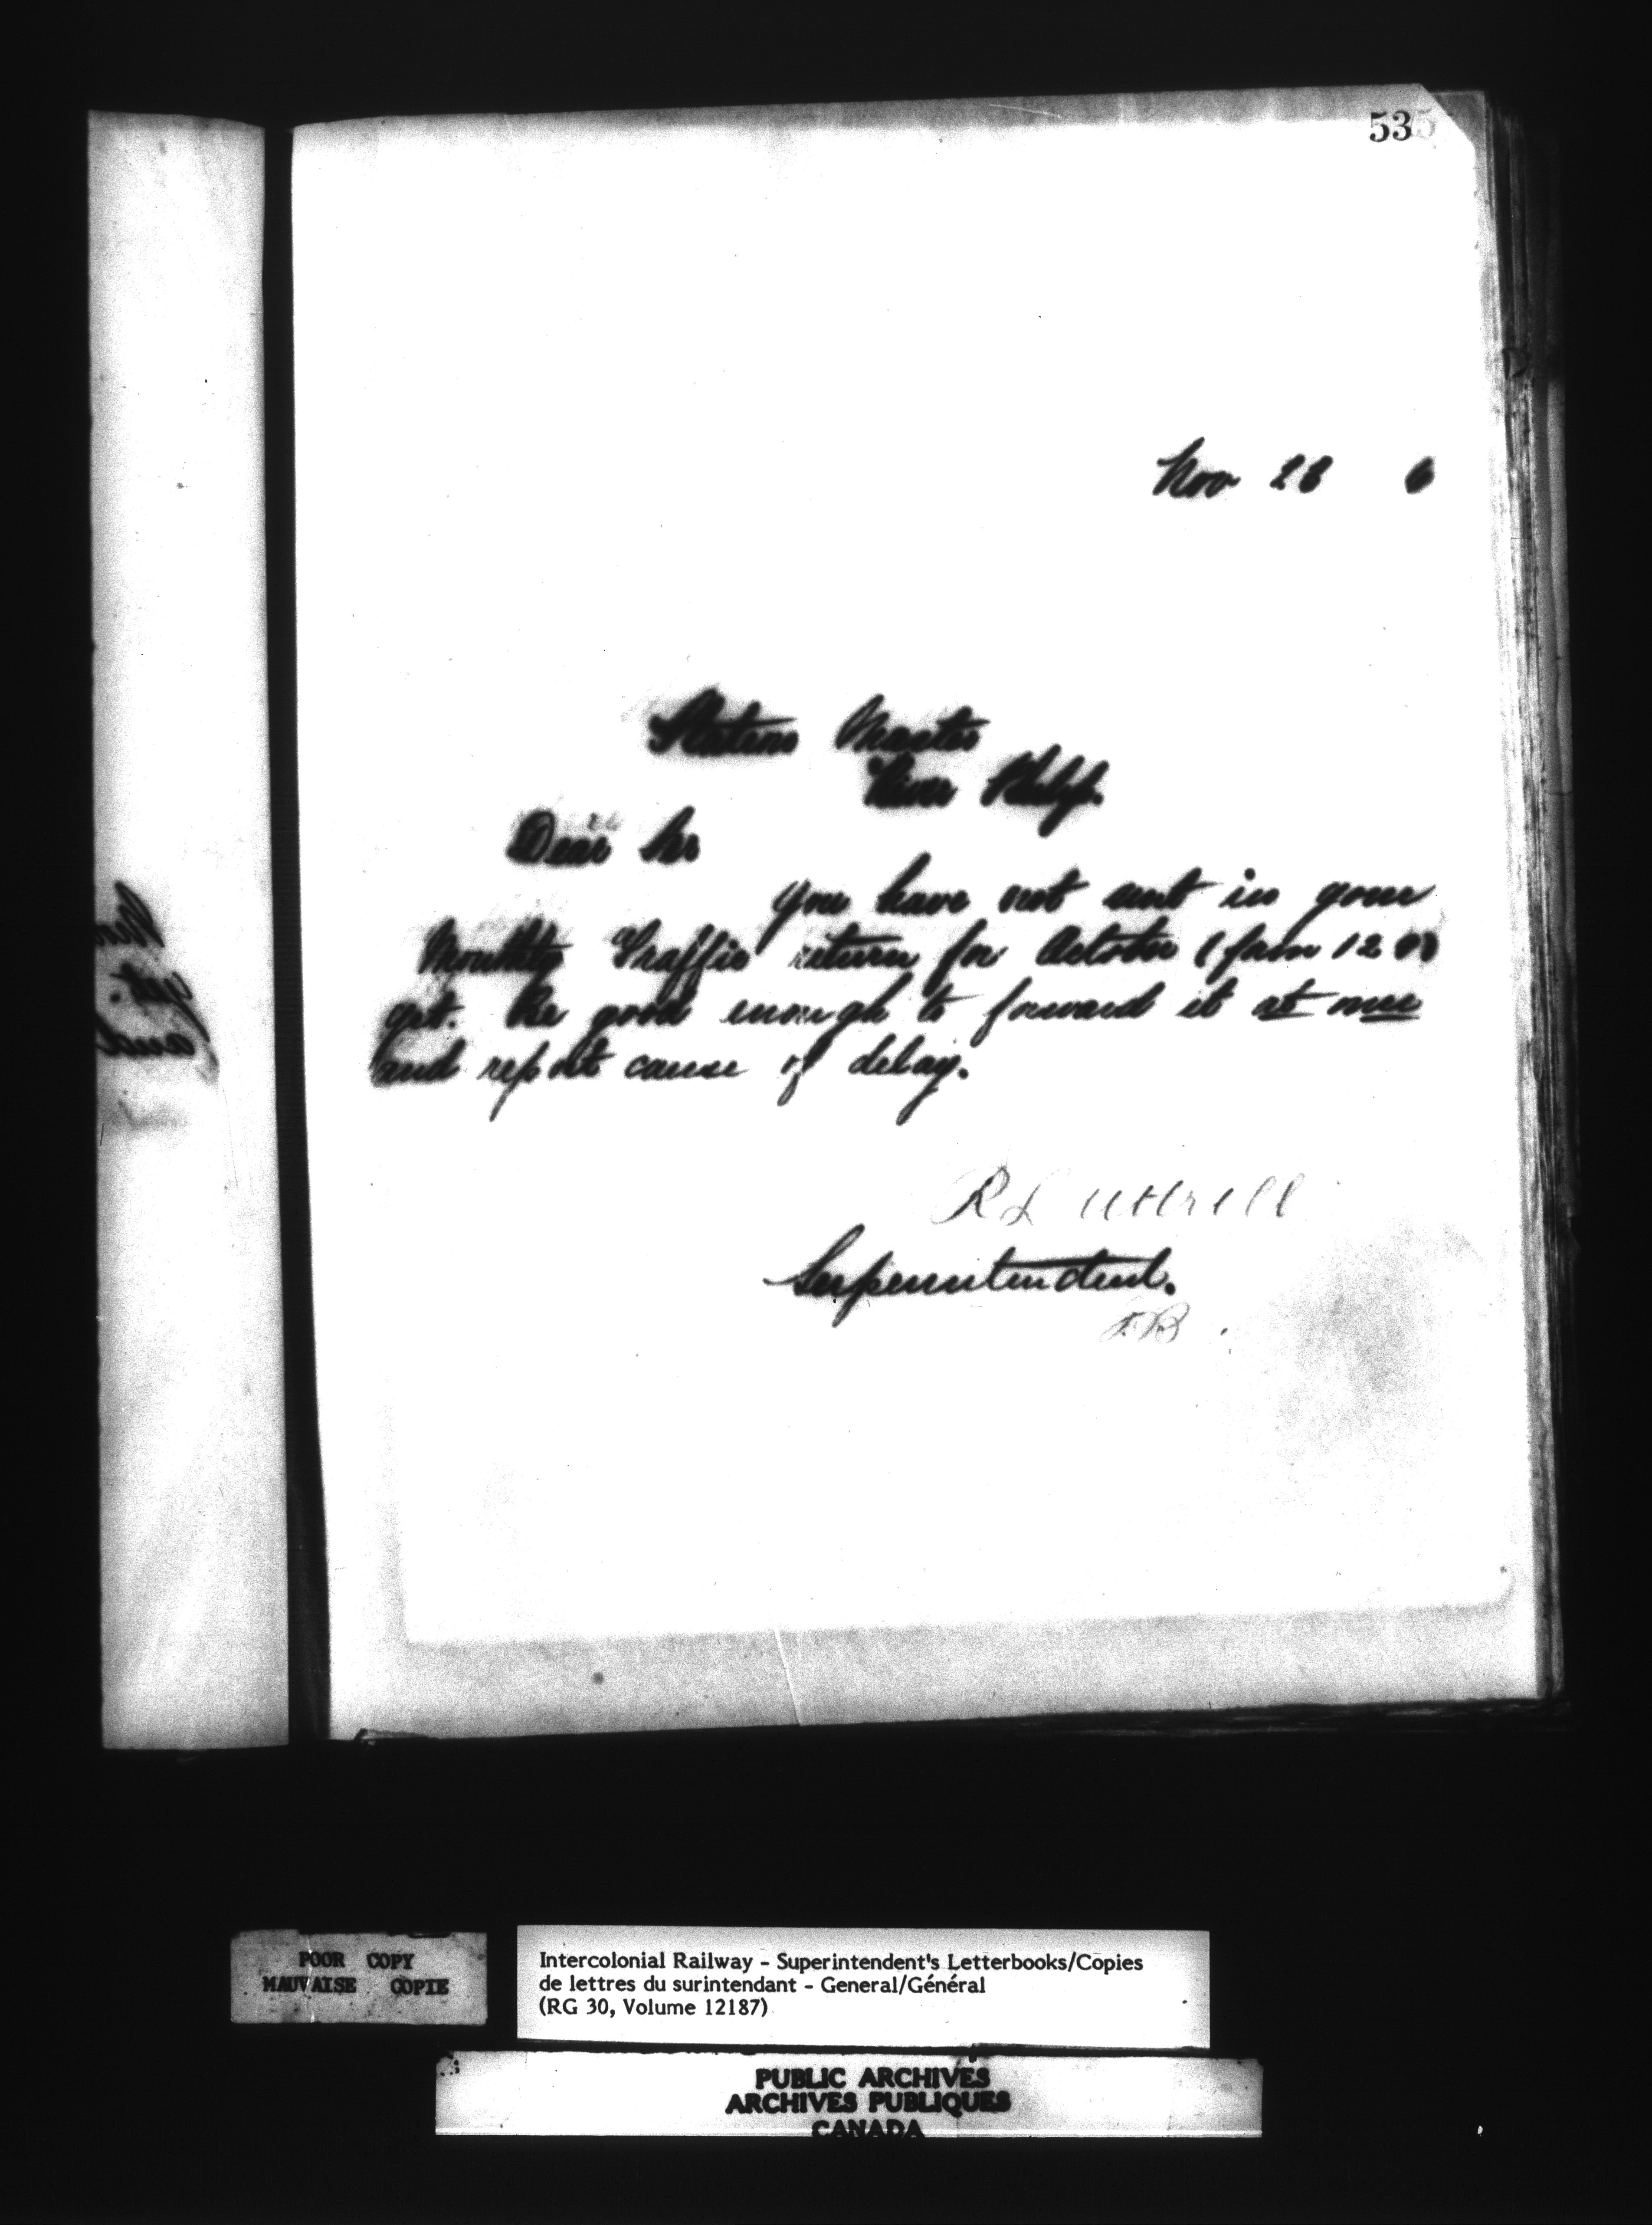 535
Nov 28 6
Station Master
River Philip.
Dear Sir
You have not sent in your
Monthly Traffic return for October (form 12
yet. Be good enough to forward it at once
and report cause of delay.
R Luttrell
Superintendent.
POOR COPY
MAUVAISE COPIE
Intercolonial Railway - Superintendent's Letterbooks/Copies
de lettres du surintendant - General/Général
(RG 30, Volume 12187)
PUBLIC ARCHIVES
ARCHIVES PUBLIQUES
CANADA